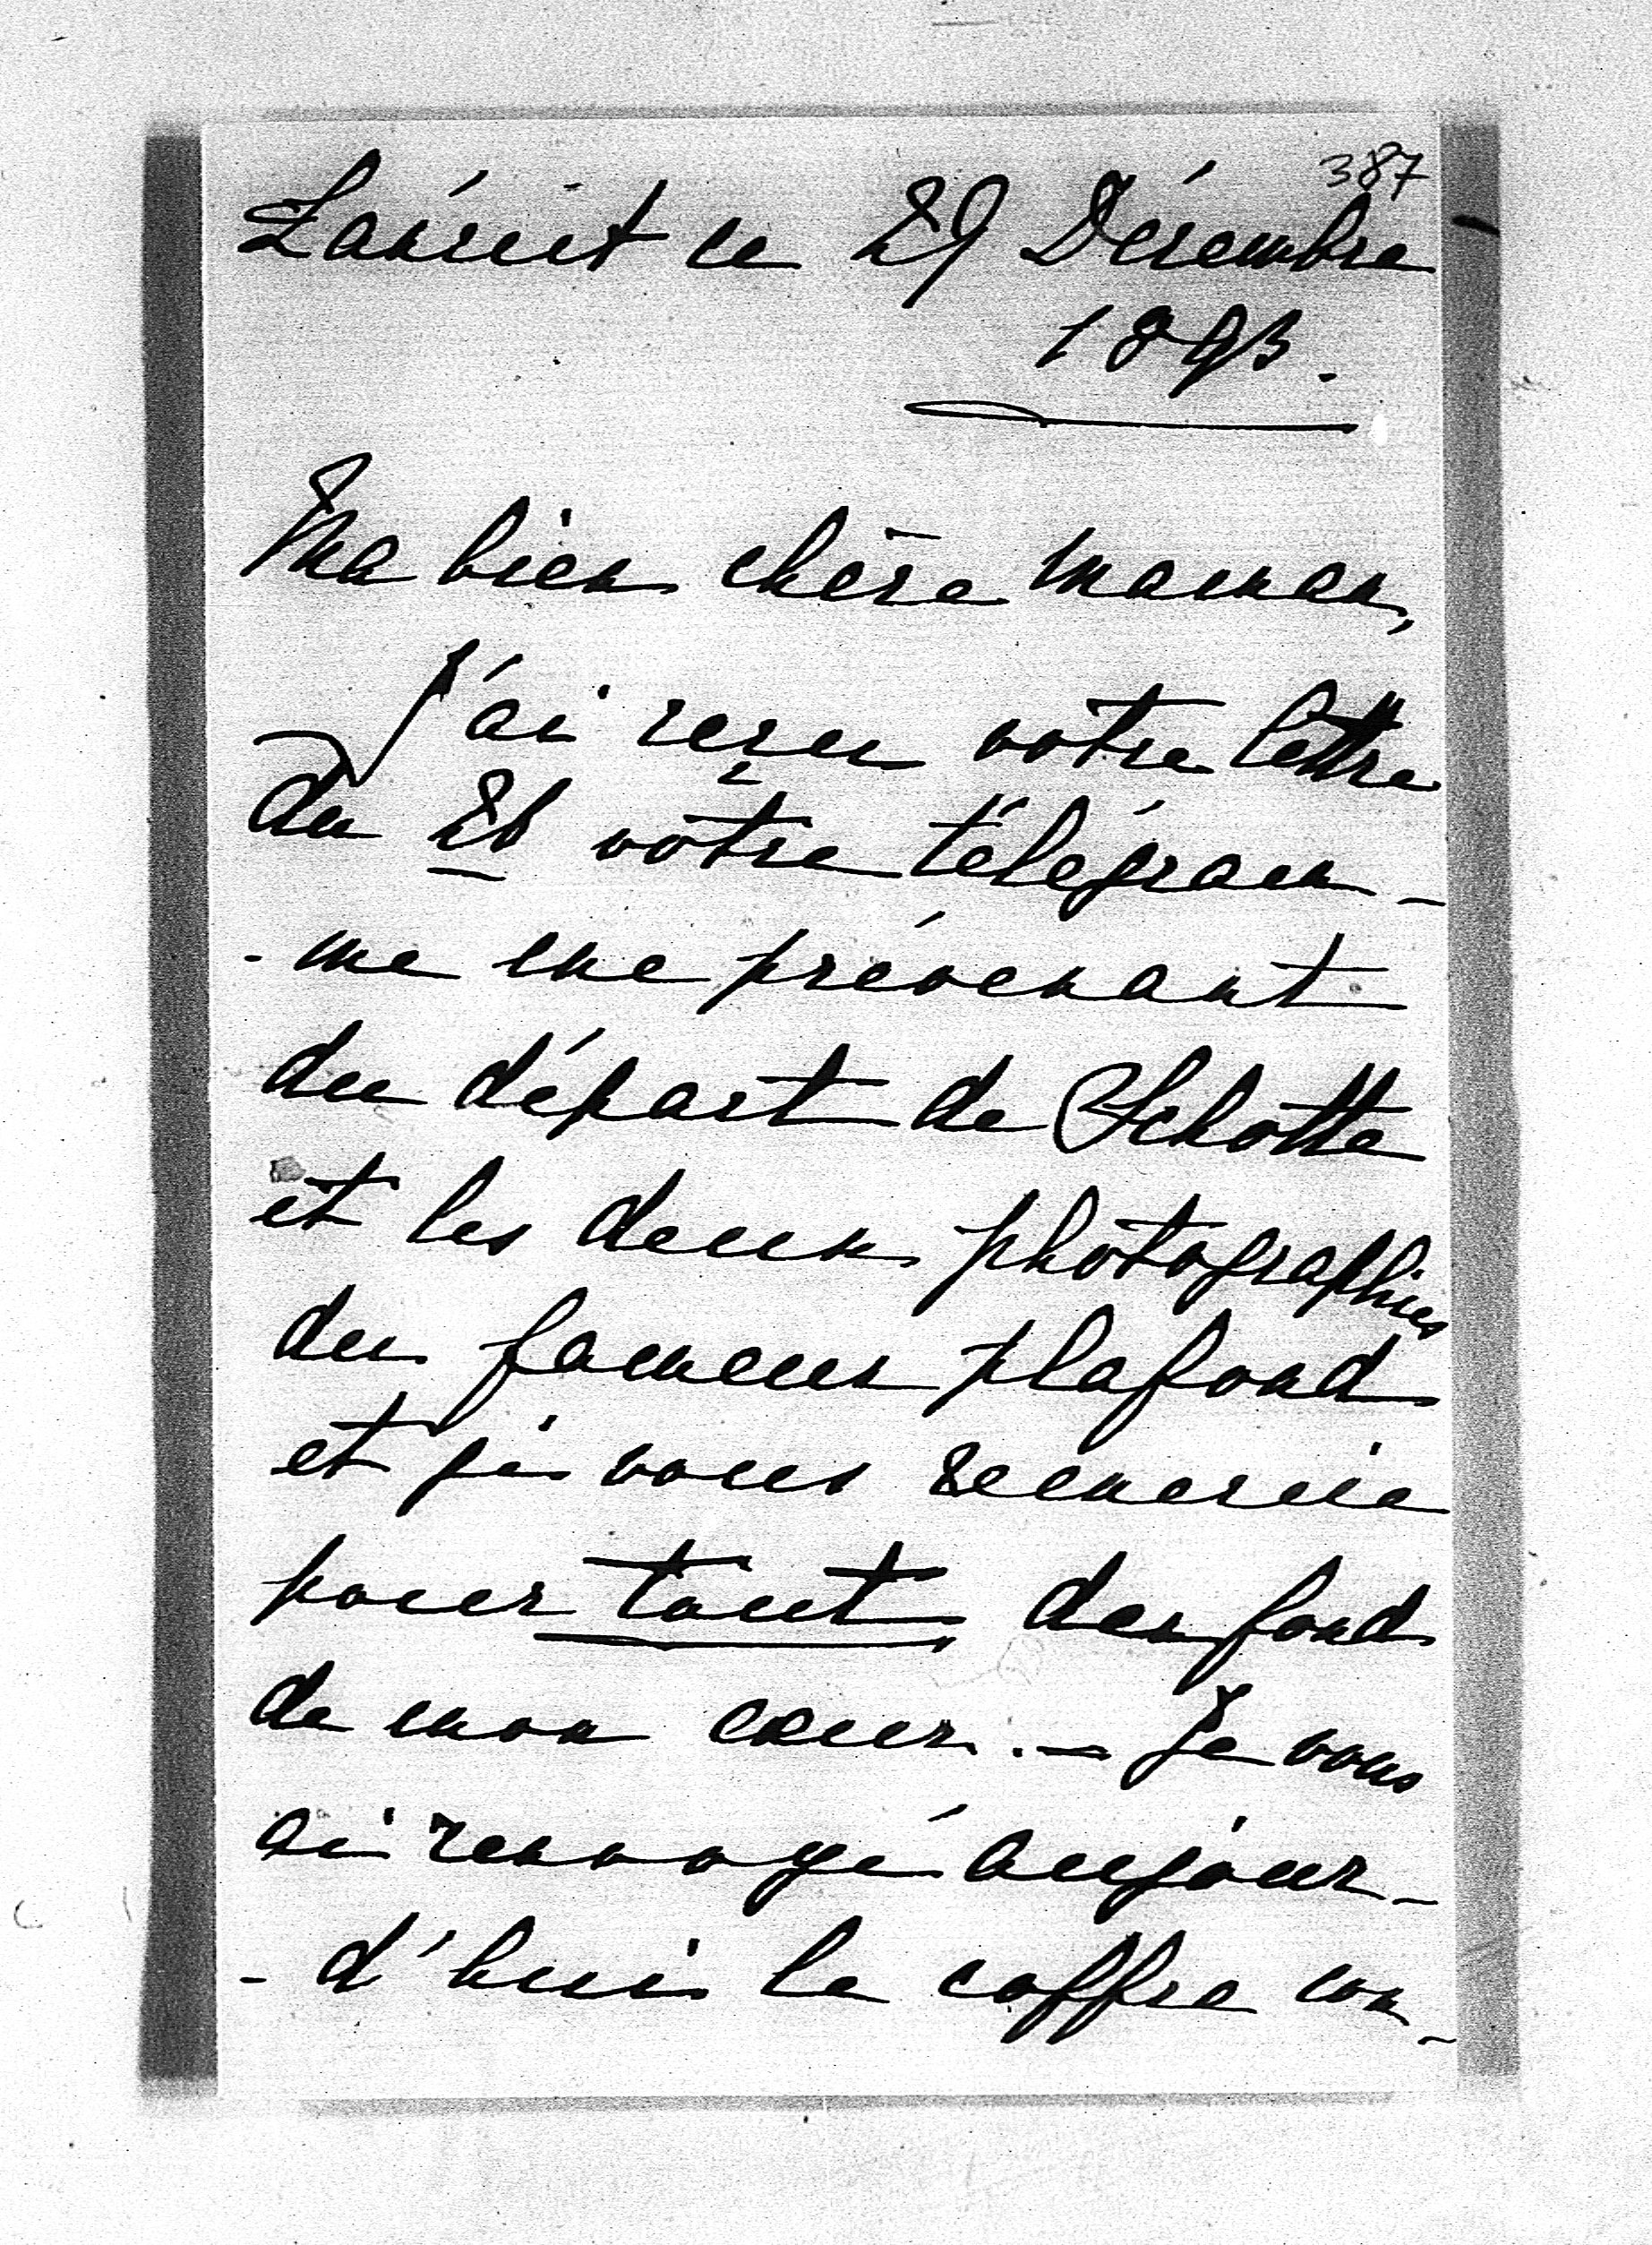 387
Łańcut ce 29 Décembre
1893.
Ma bien chère maman,
J'ai reçu votre lettre
du 26 votre télégram-
- me me prévenant
du départ de Schotte
et les deux photographies
du fameux plafond
et je vous remercie
pour tout, du fond
de mon cœur. — Je vous
ai renvoyé aujour-
- d'hui le coffre con-